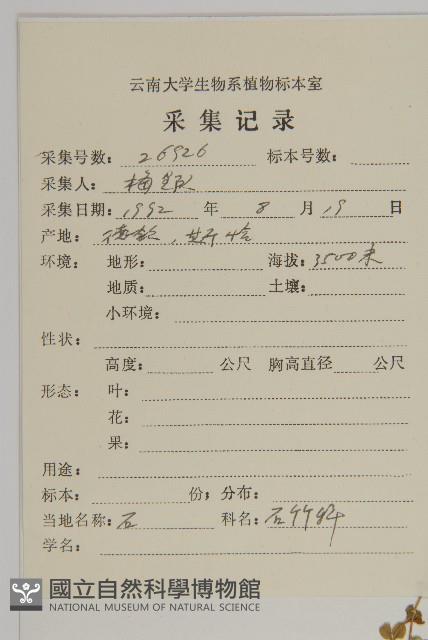 云南大学生物系植物标本室
采集记录
采集号数： 26926 标本号数：
采集人：
采集日期： 1992 年 8 月 19 日
产地： 德钦，
环境： 地形： 海拔： 3500米
地质： 土壤：
小环境：
性状：
高度： 公尺 胸高直径 公尺
形态： 叶：
花：
果：
用途：
标本： 份；分布：
当地名称： 石 科名： 石竹科
学名：
國立自然科學博物館
NATIONAL MUSEUM OF NATURAL SCIENCE